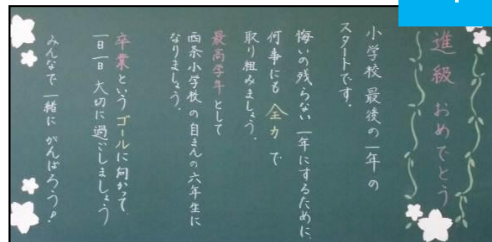 進級 おめでとう
小学校 最後の一年の
スタートです。
悔いの残らない 一年にするために、
何事にも 全力 で
取り組みましょう。
最高学年として
西条小学校の自まんの六年生に
なりましょう。
卒業というゴールに向かって、
一日一日 大切に過ごしましょう
みんなで 一緒に がんばろう!